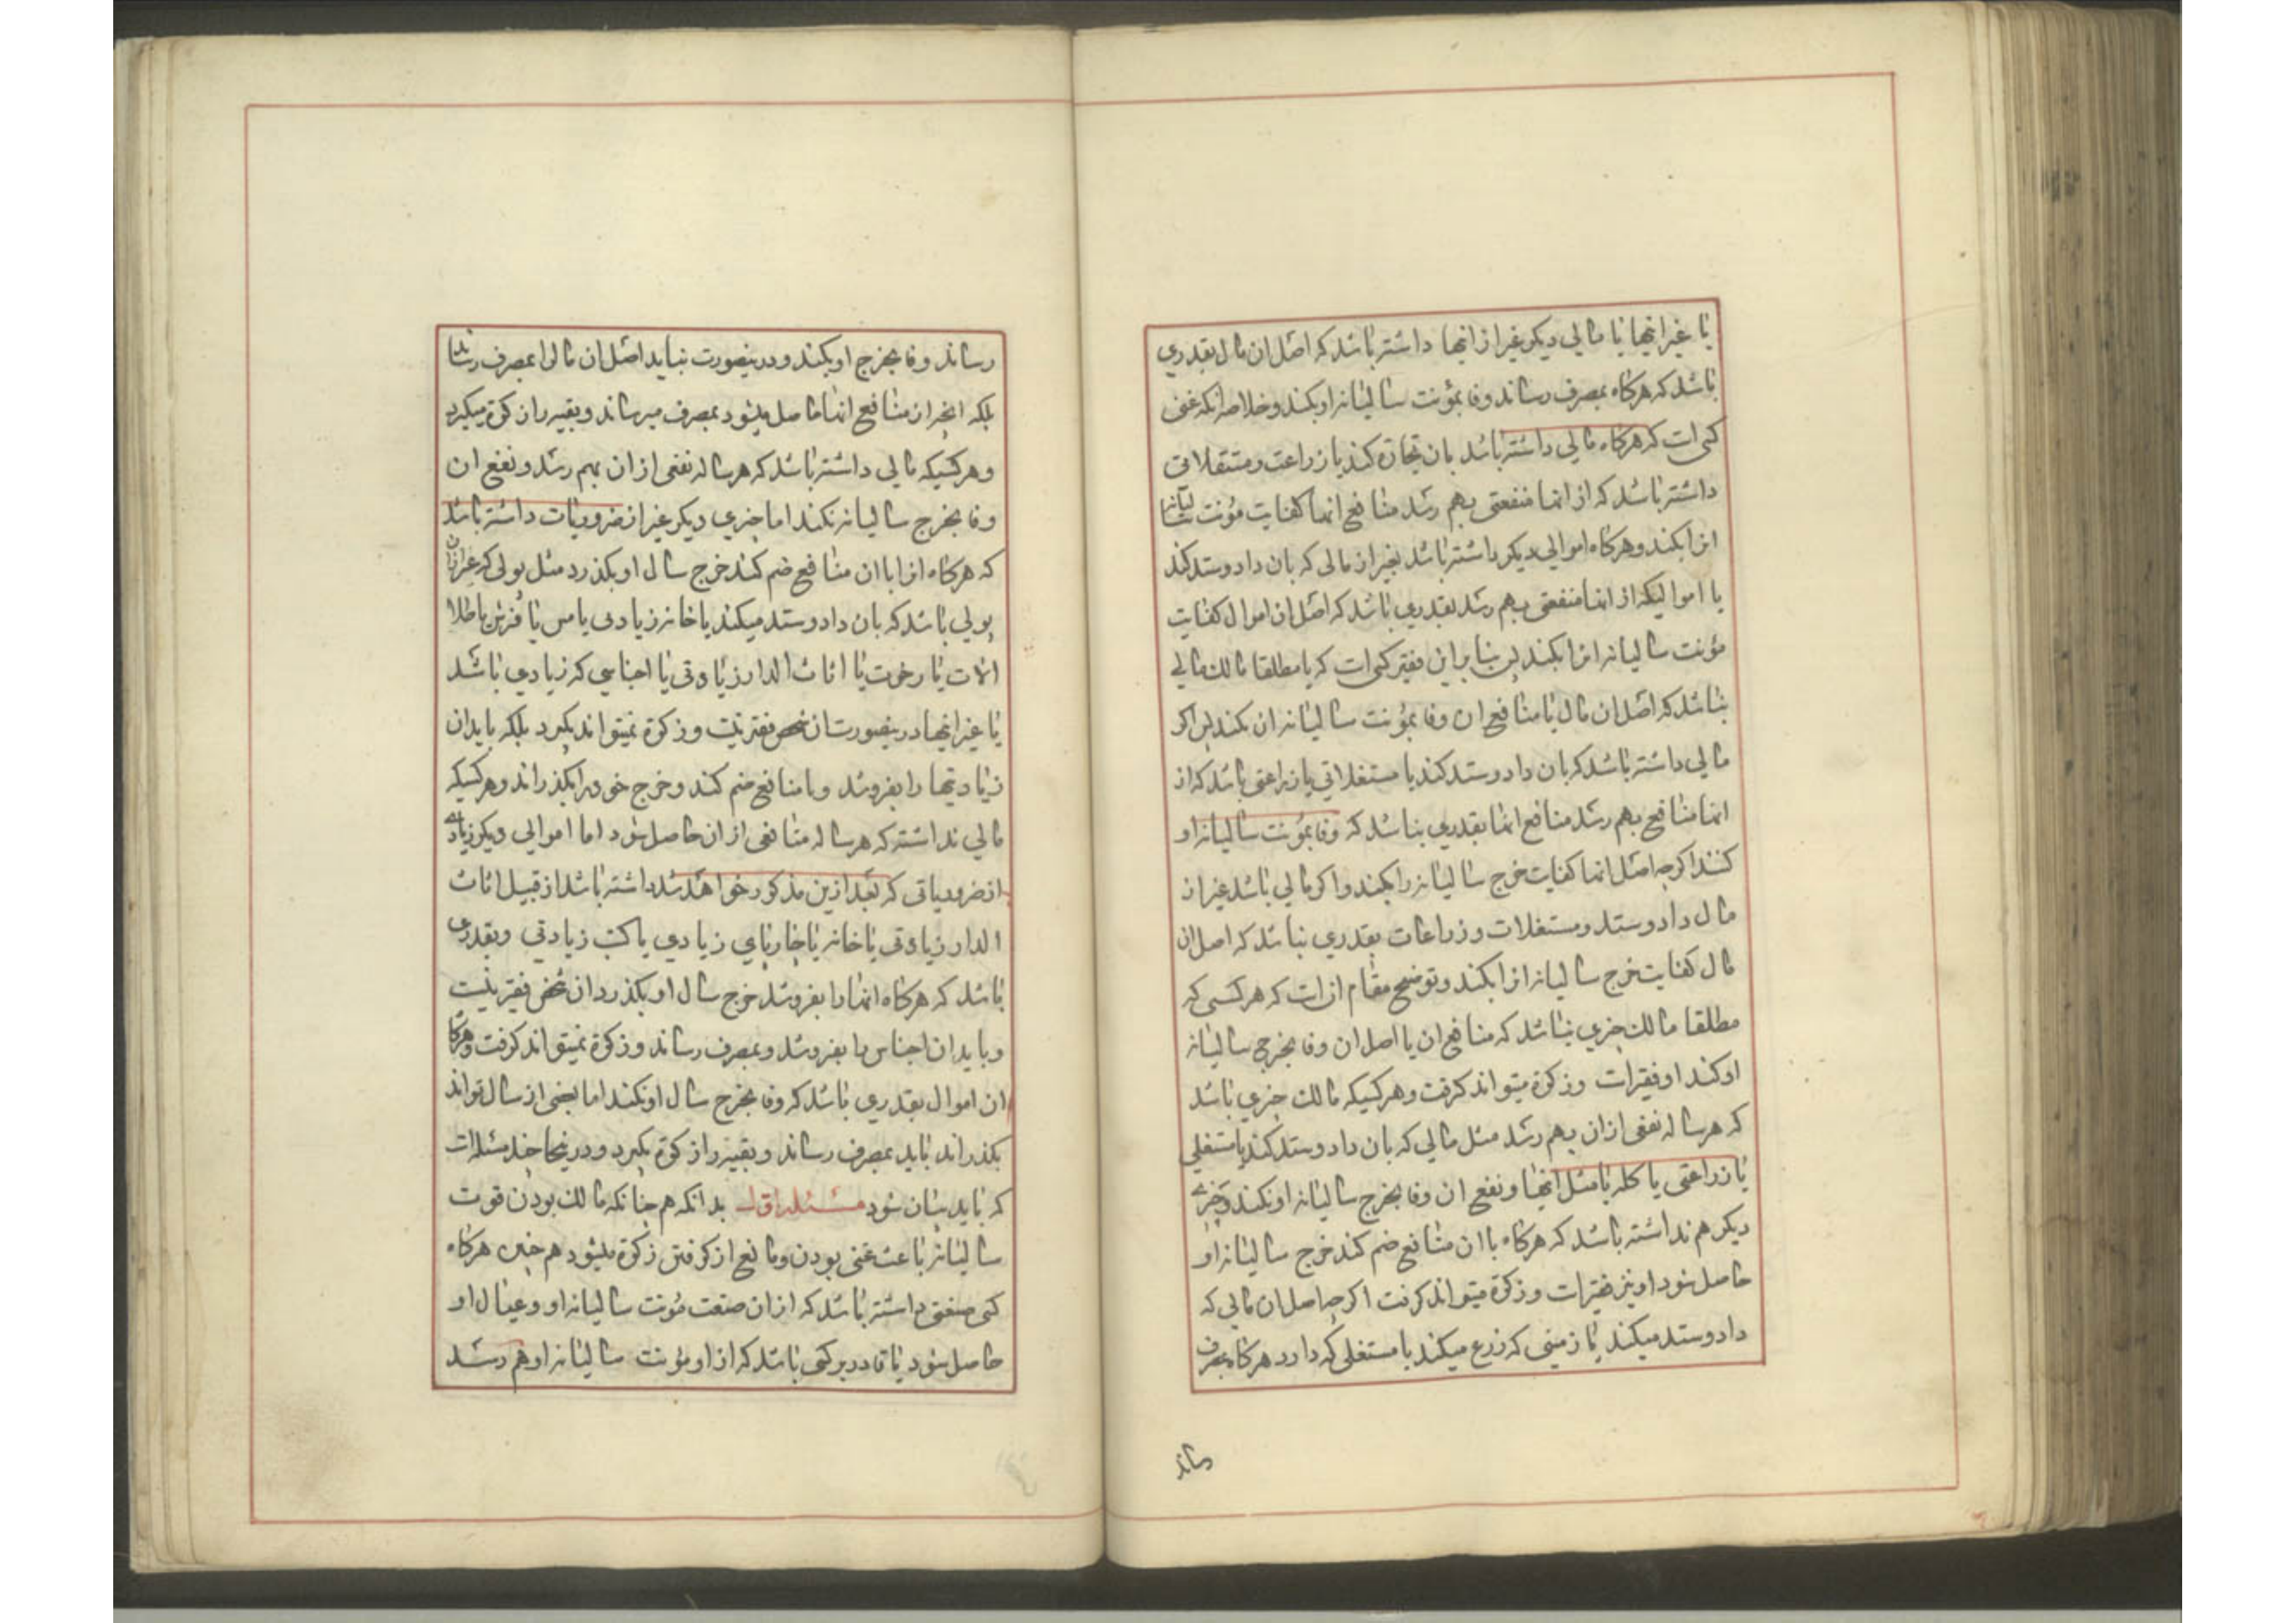 یا غیر اینها یا مالی دیکر غیر از اینها داشته باشد که اصل ان مال بقدری
باشد که هرکاه بمصرف رساند وفا بمؤنت سالیانه او بکند و خلاصه انکه غنی
کسی است که هرکاه مالی داشته باشد بان تجارة کند یا زراعت و مستغلاتی
داشته باشد که از انها منفعتی بهم رسد منافع انها کفایت مؤنت سالیانه
انرا بکند و هرکاه اموالی دیکر داشته باشد بغیر از مالی که بان داد و ستد کند
یا اموالیکه از انها منفعتی بهم رسد بقدری باشد که اصل ان اموال کفایت
مؤنت سالیانه انرا بکند پس بنا براین فقیر کسی است که یا مطلقا مالک مالی
نباشد که اصل ان مال یا منافع ان وفا بمؤنت سالیانه ان بکند پس اکر
مالی داشته باشد که بان داد و ستد کند یا مستغلاتی یا زراعتی باشد که از
انها منافع بهم رسد منافع انها بقدری نباشد که وفا بمؤنت سالیانه او
کند اکرچه اصل انها کفایت خرج سالیانه را بکند و اکر مالی باشد غیر از
مال داد و ستد و مستغلات و زراعات بقدری نباشد که اصل ان
مال کفایت خرج سالیانه انرا بکند و توضیح مقام ان است که هر کسی که
مطلقا مالک چیزی نباشد که منافع ان یا اصل ان وفا بخرج سالیانه
او کند او فقیر است و زکوة میتواند کرفت و هر کسیکه مالک چیزی باشد
که هر ساله نفعی از ان بهم رسد مثل مالی که بان داد و ستد کند یا مستغلی
یا زراعتی یا کله یا مثل اینها و نفع ان وفا بخرج سالیانه او نکند و چیزی
دیکر هم نداشته باشد که هرکاه با ان منافع ضم کند خرج سالیانه او
حاصل شود او نیز فقیر است و زکوة میتواند کرفت اکرچه اصل ان مالی که
داد و ستد میکند یا زمینی که زرع میکند یا مستغلی که دارد هرکاه بمصرف
رساند
رساند وفا بخرج او بکند و در ینصورت نباید اصل ان مال را بمصرف رساند
بلکه انچه از منافع انها حاصل میشود بمصرف میرساند و بقیه را زکوة میکیرد
و هر کسیکه مالی داشته باشد که هر ساله نفعی از ان بهم رسد و نفع ان
وفا بخرج سالیانه نکند اما چیزی دیکر غیر از ضروریات داشته باشد
که هرکاه انرا با ان منافع ضم کند خرج سال او بکذرد مثل پولی که غیر از ان
پولی باشد که بان داد و ستد میکند یا خانه زیادی یا مس یا فرش یا طلا
الات یا رخوت یا اثاث الدار زیادتی یا اجناسی که زیادی باشد
یا غیر اینها در ینصورت ان شخص فقیر نیست و زکوة نمیتواند بکیرد بلکه باید ان
زیادتیها را بفروشد و با منافع ضم کند و خرج خود را بکذراند و هر کسیکه
مالی نداشته که هر ساله منافعی از ان حاصل شود اما اموالی دیکر زیاده
از ضروریاتی که بعد ازین مذکور خواهد شد داشته باشد از قبیل اثاث
الدار زیادتی یا خانه یا چارپای زیادی یا کتب زیادتی و بقدری
باشد که هرکاه انها را بفروشد خرج سال او بکذرد ان شخص فقیر نیست
و باید ان اجناس را بفروشد و بمصرف رساند و زکوة نمیتواند کرفت و هرکاه
ان اموال بقدری باشد که وفا بخرج سال او نکند اما بعضی از سال تواند
بکذراند باید بمصرف رساند و بقیه را زکوة بکیرد و در اینجا چند مسئله است
که باید بیان شود مسئله اول بدانکه هم چنانکه مالک بودن قوت
سالیانه باعث غنی بودن و مانع از کرفتن زکوة میشود هم چنین هرکاه
کسی صنعتی داشته باشد که از ان صنعت مؤنت سالیانه او و عیال او
حاصل شود یا قادر بر کسبی باشد که از او مؤنت سالیانه او بهم رسد